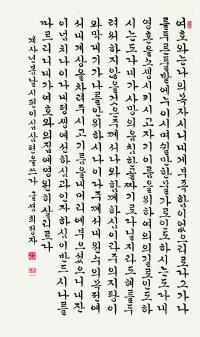 여호와는나의목자시니내게부족함이없으리로다그가나
를푸른풀밭에누이시며쉴만한물가로인도하시는도다내
영혼을소생시키시고자기이름을위하여의의길로인도하
시는도다내가사망의음침한골짜기로다닐지라도해를두
려워하지않을것은주께서나와함께하심이라주의지팡이
와막대기가나를안위하시나이다주께서내원수의목전에
서내게상을차려주시고기름을내머리에부으셨으니내잔
이넘치나이다내평생에선하심과인자하심이반드시나를
따르리니내가여호와의집에영원히살리로다
계사년봄날시편이십삼편을쓰다 최정자